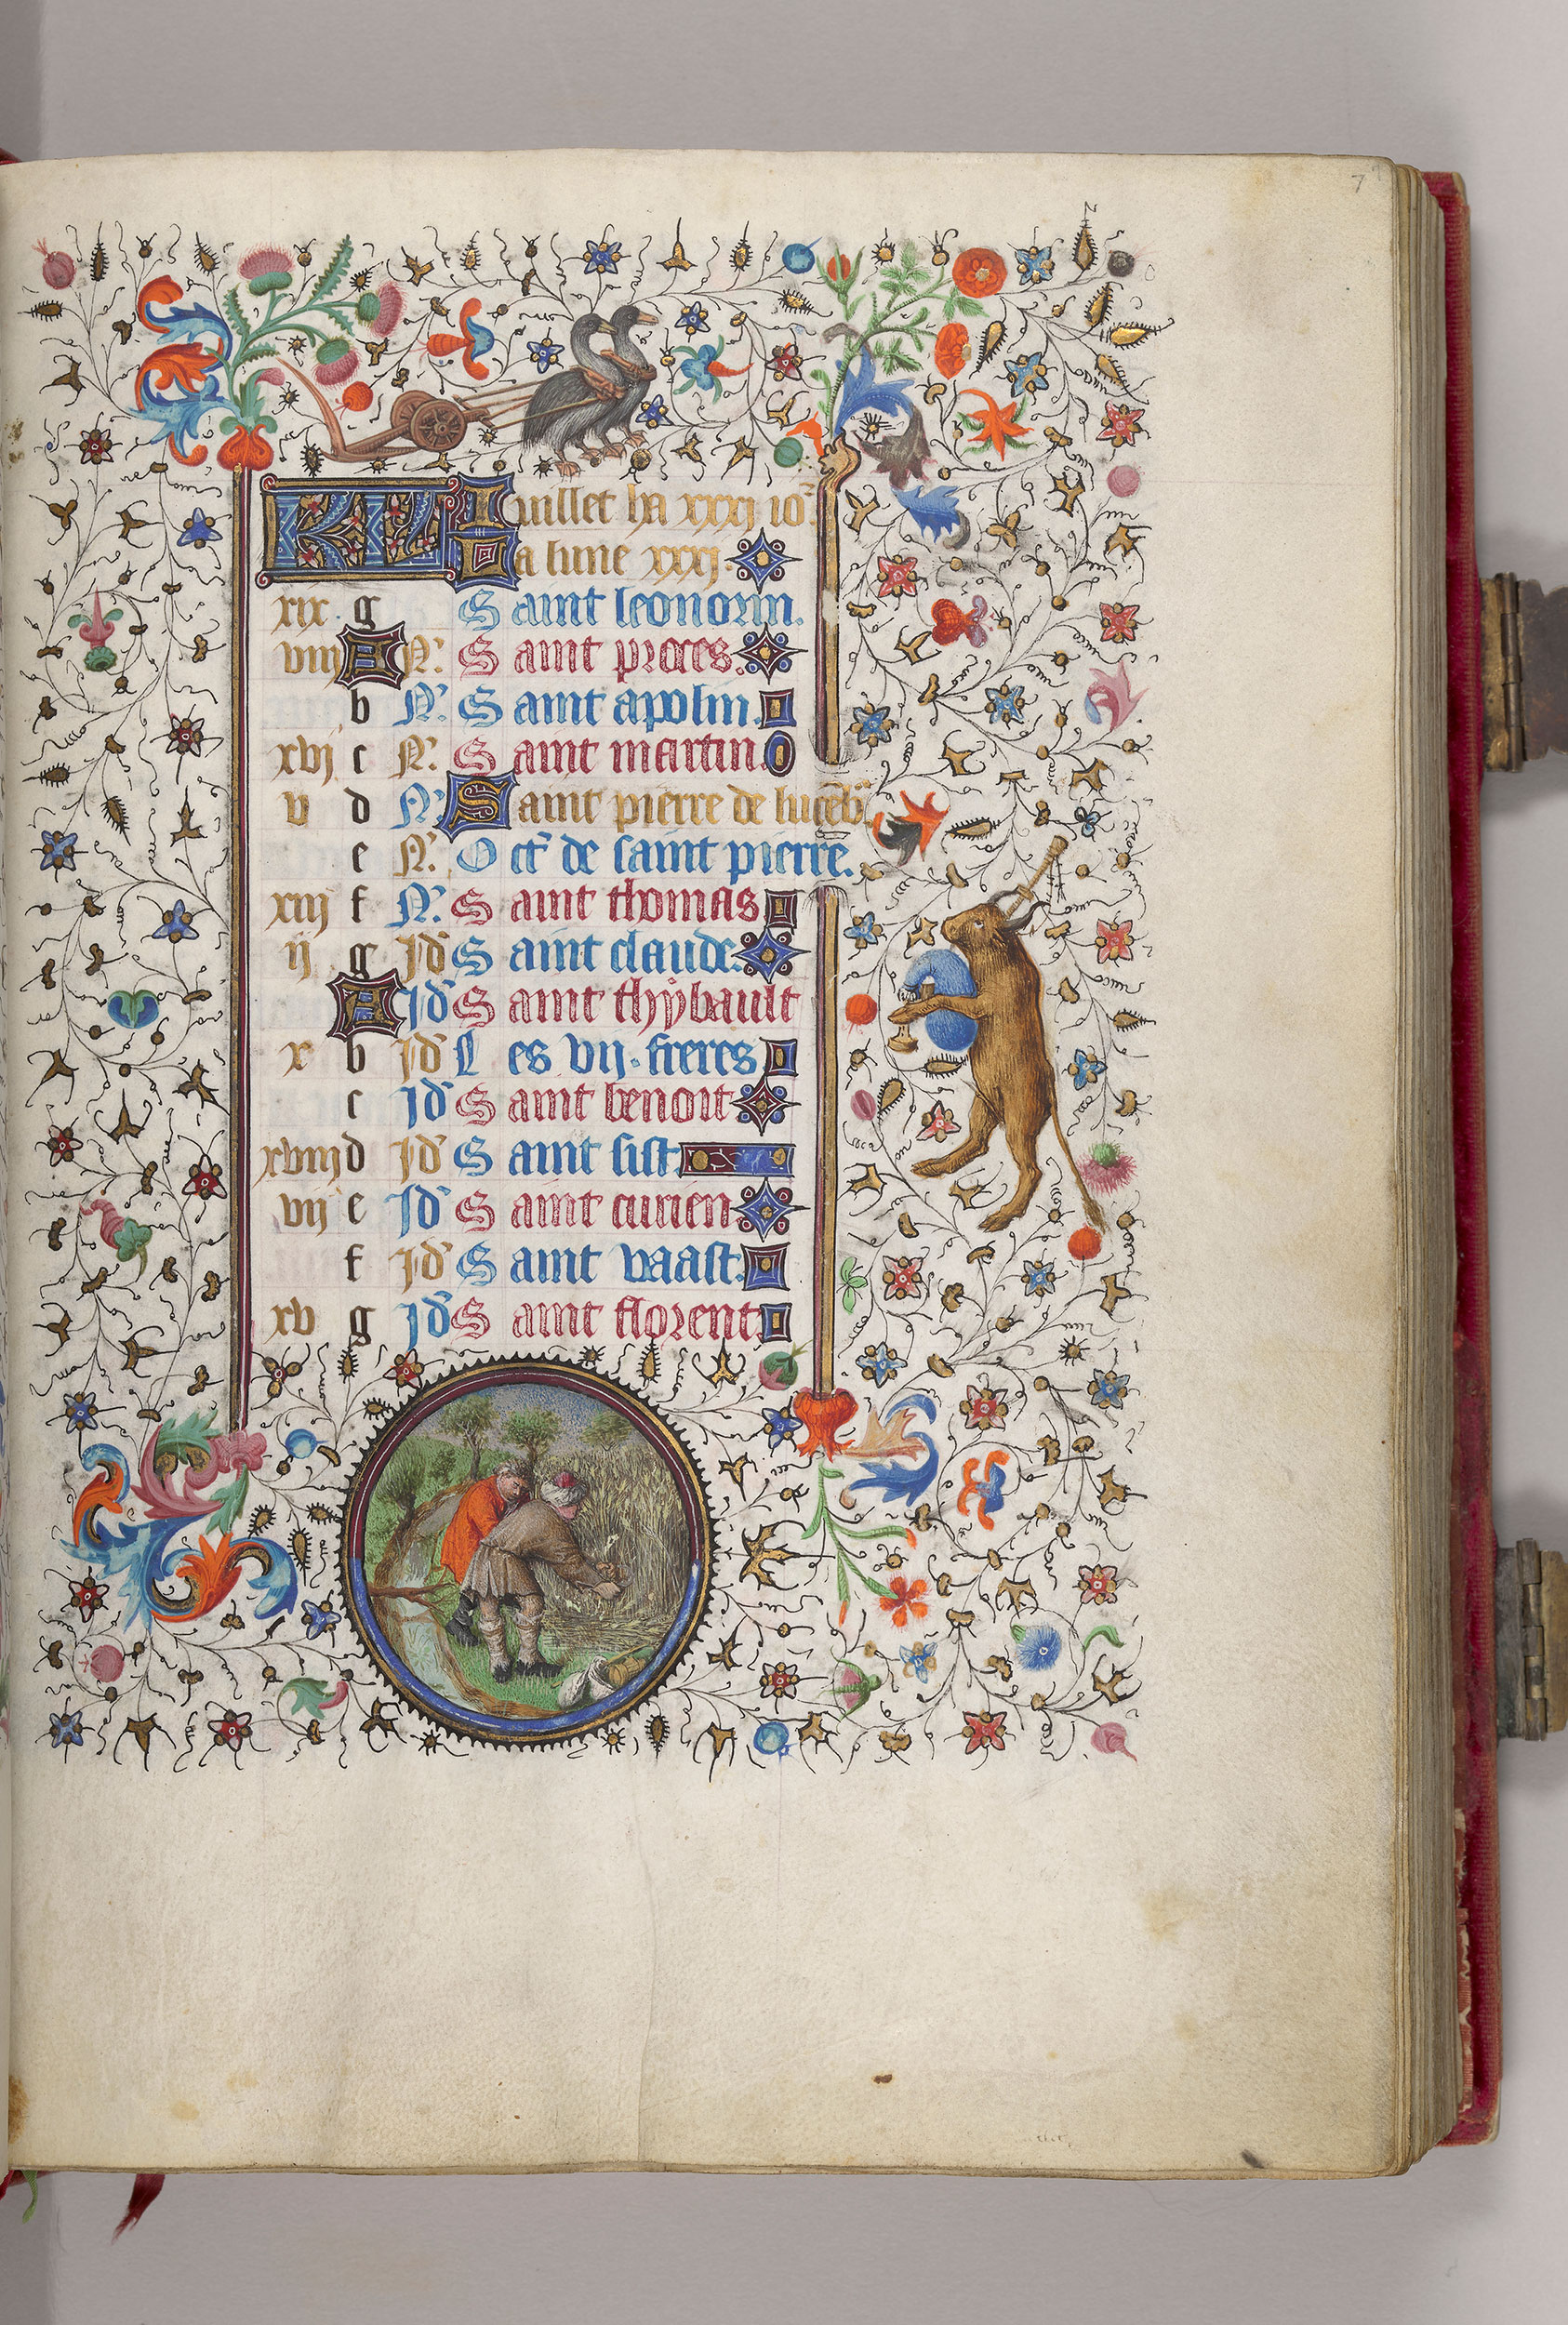 7
KL Juillet ha xxxj io᷑s
La lune xxxj.
xix. g Saint leonorin.
viij A N. Saint proces.
b N. Saint apolin.
xvj c N. Saint martin.
v d N. Saint pierre de
e N. Oct' de saint pierre.
xiij f N. Saint thomas
ij g Jd' Saint claude.
A Jd' Saint thybault
x b Jd' Les vij. freres
c Jd' Saint benoit
xviij d Jd' Saint sist.
vij e Jd' Saint turien
f Jd' Saint vaast.
xv g Jd' Saint florent.